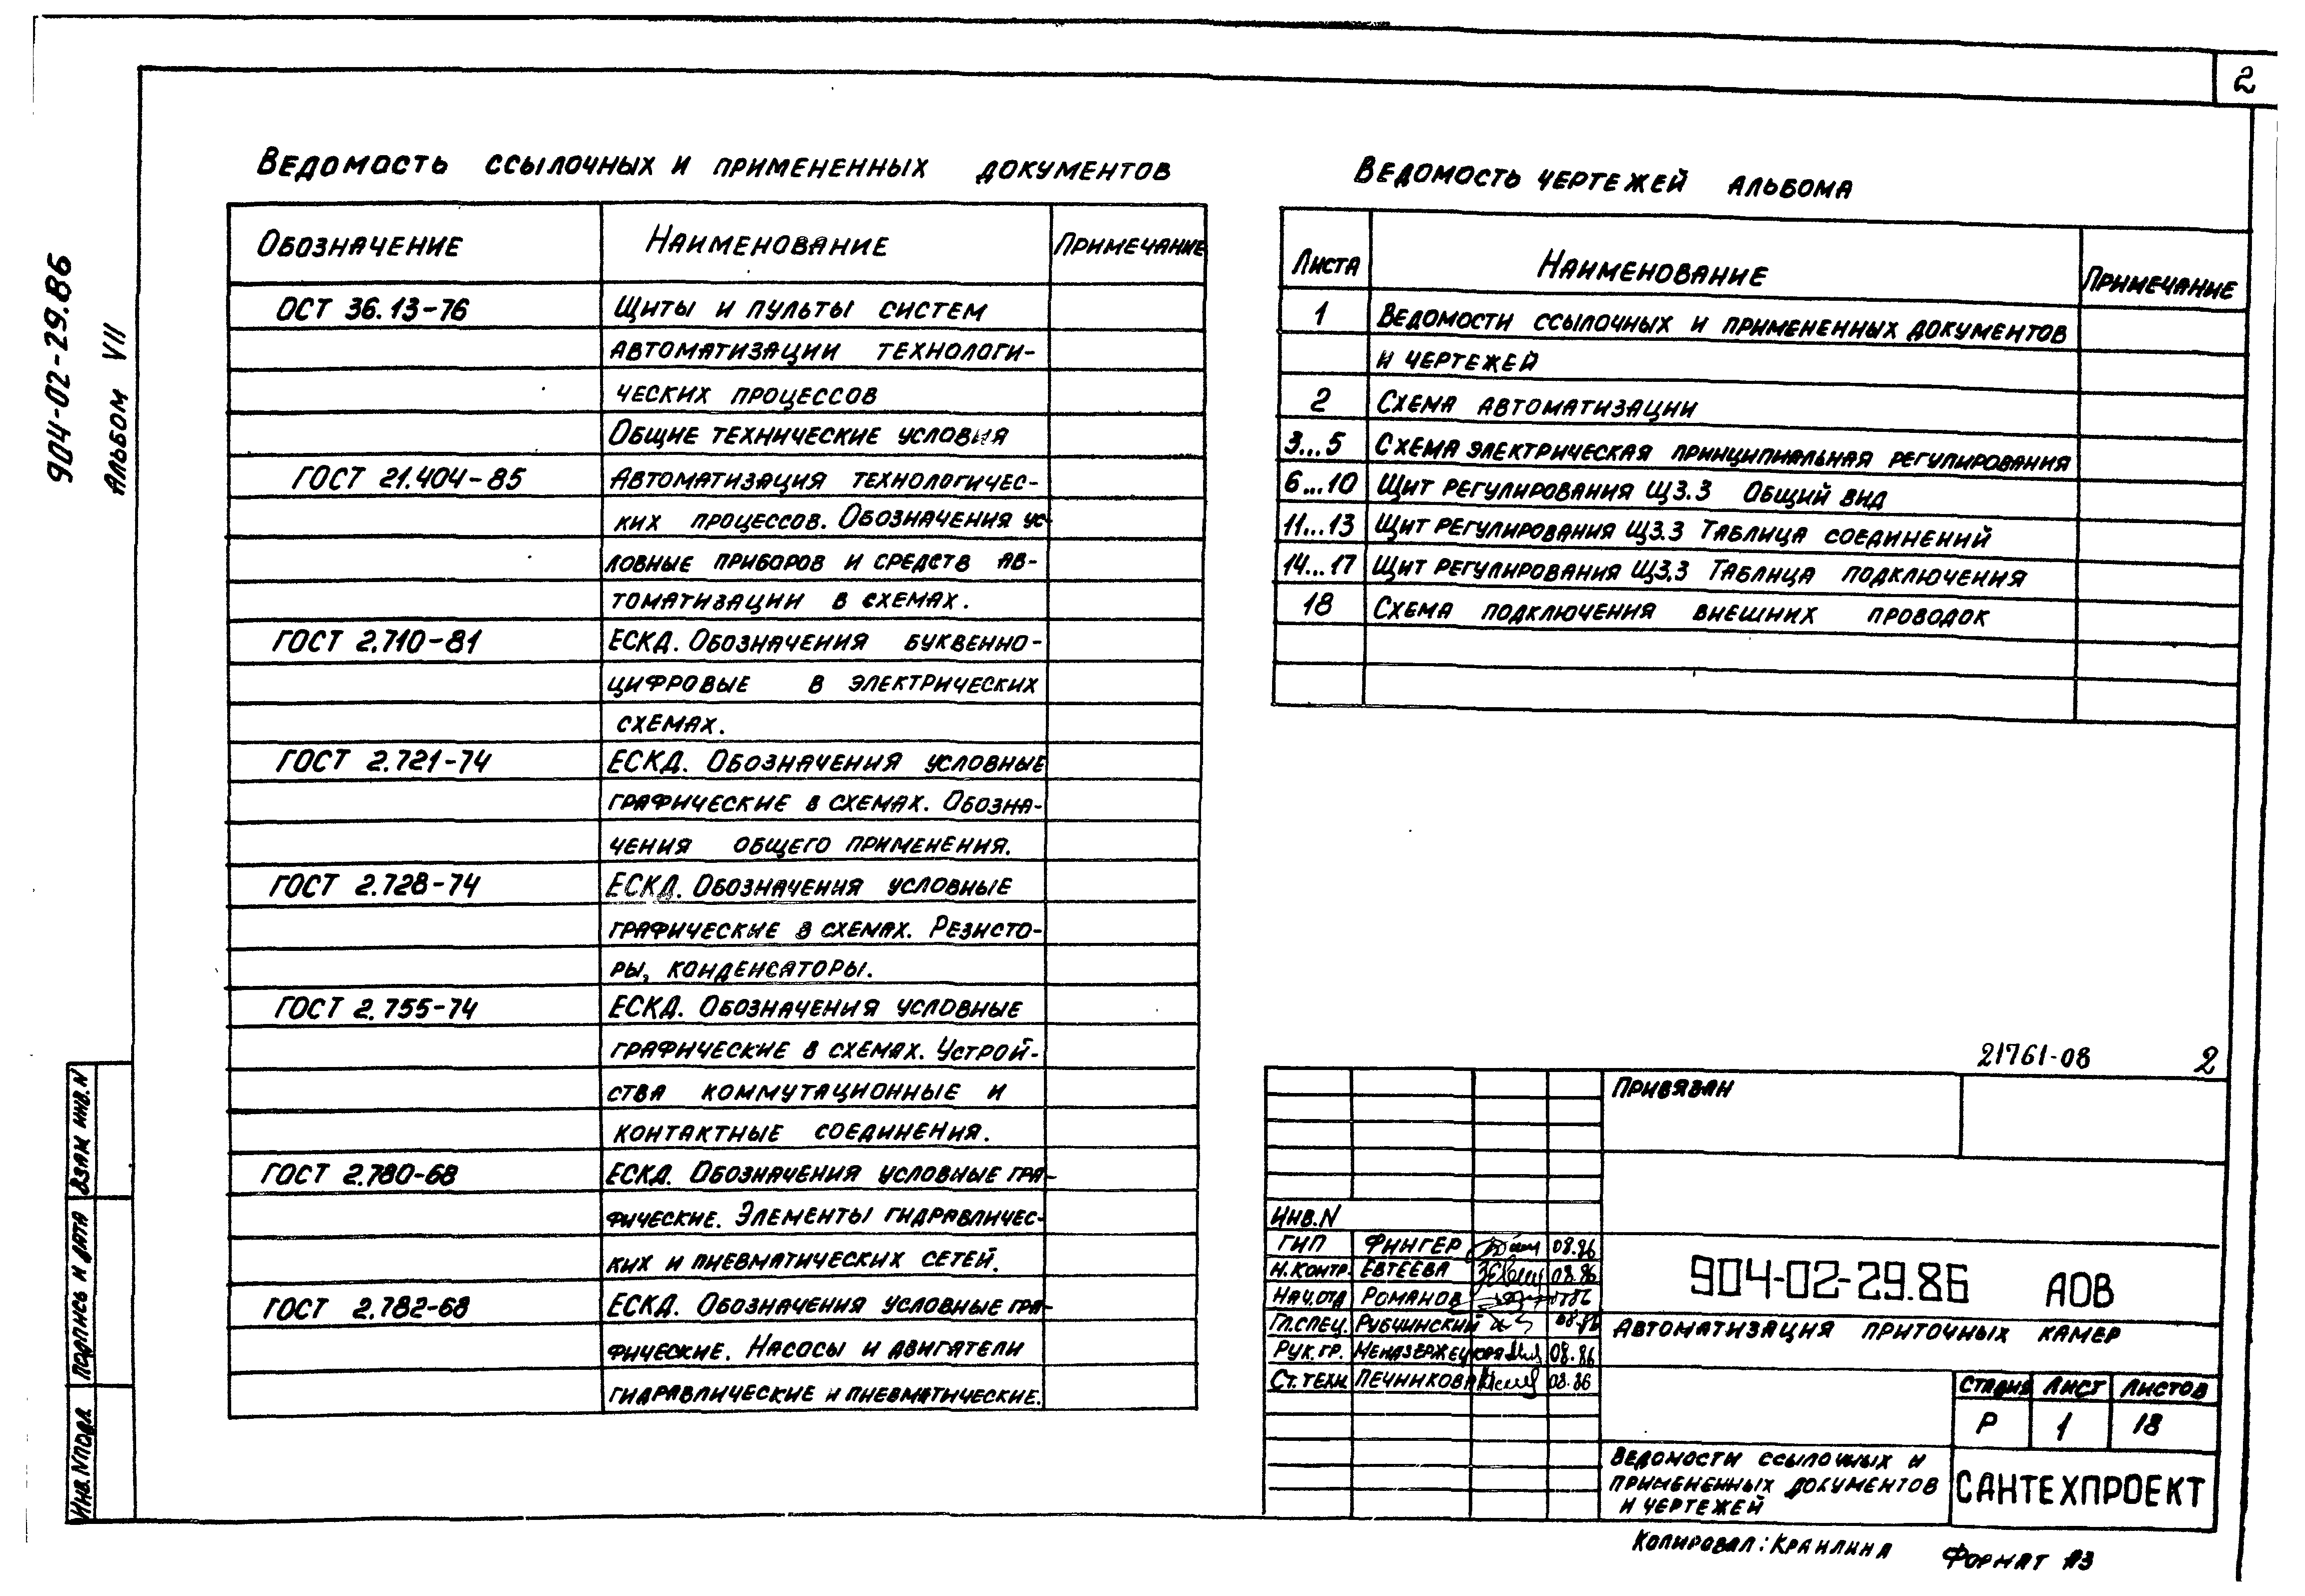 2
904-02-29.86
Альбом VII
Ведомость ссылочных и примененных документов
Обозначение Наименование Примечание
ОСТ 36.13-76 Щиты и пульты систем
автоматизации технологи-
ческих процессов
Общие технические условия
ГОСТ 21.404-85 Автоматизация технологичес-
ких процессов. Обозначения ус-
ловные приборов и средств ав-
томатизации в схемах.
ГОСТ 2.710-81 ЕСКД. Обозначения буквенно-
цифровые в электрических
схемах.
ГОСТ 2.721-74 ЕСКД. Обозначения условные
графические в схемах. Обозна-
чения общего применения.
ГОСТ 2.728-74 ЕСКД. Обозначения условные
графические в схемах. Резисто-
ры, конденсаторы.
ГОСТ 2.755-74 ЕСКД. Обозначения условные
графические в схемах. Устрой-
ства коммутационные и
контактные соединения.
ГОСТ 2.780-68 ЕСКД. Обозначения условные гра-
фические. Элементы гидравличес-
ких и пневматических сетей.
ГОСТ 2.782-68 ЕСКД. Обозначения условные гра-
фические. Насосы и двигатели
гидравлические и пневматические.
Ведомость чертежей альбома
Листа Наименование Примечание
1 Ведомости ссылочных и примененных документов
и чертежей
2 Схема автоматизации
3...5 Схема электрическая принципиальная регулирования
6...10 Щит регулирования Щ3.3 Общий вид
11...13 Щит регулирования Щ3.3 Таблица соединений
14...17 Щит регулирования Щ3.3 Таблица подключения
18 Схема подключения внешних проводок
21761-08 2
Привязан
Инв.N
ГИП Фингер 08.86
Н.контр. Евтеева 08.86
Нач.отд Романов 08.86
Гл.спец. Рубчинский 08.86
Рук.гр. 08.86
Ст.техн. Печникова 08.86
904-02-29.86 АОВ
Автоматизация приточных камер
Стадия Лист Листов
Р 1 18
Ведомости ссылочных и
примененных документов
и чертежей
САНТЕХПРОЕКТ
Копировал: Кранлина Формат А3
Взам инв.N
Подпись и дата
Инв.Nподл.